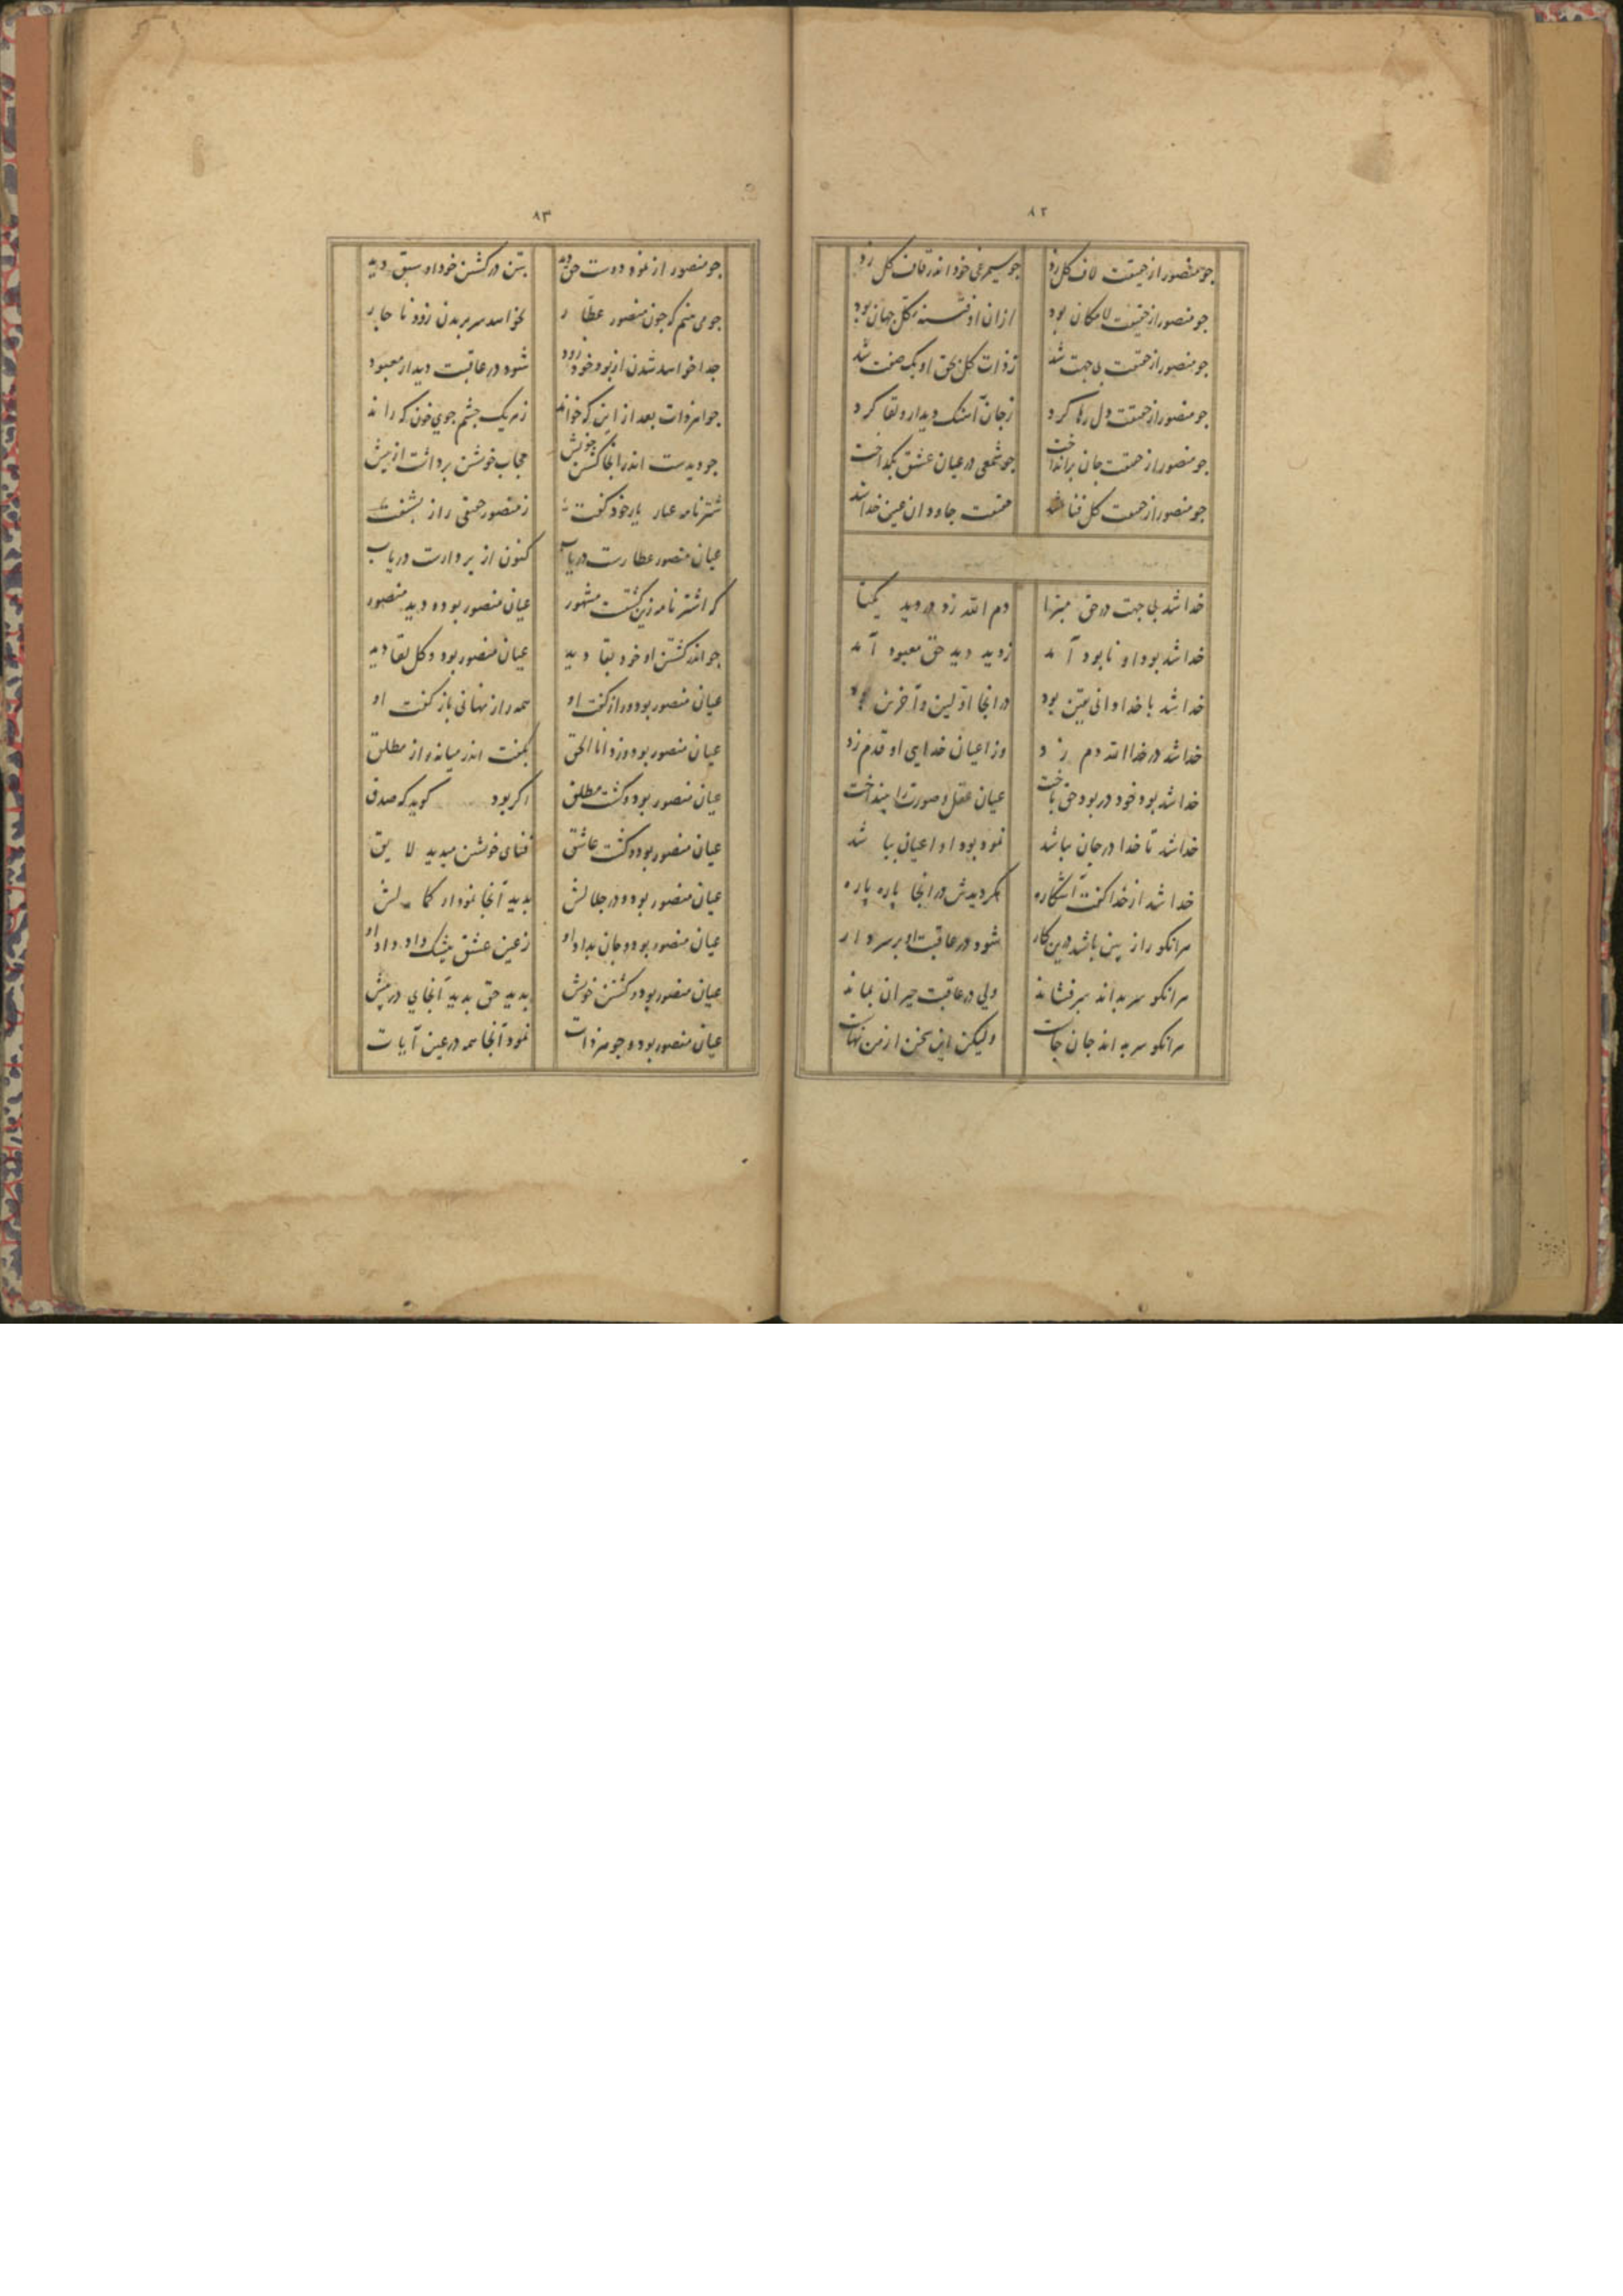 ۸۲
جو منصور از حقیقت لاف کل زد جو سیمرغی خود اندر قاف کل زد
جو منصور از حقیقت لامکان بود از ان او فتنه کل جهان بود
جو منصور از حقیقت بی جهت شد ز ذات کل بحق او یک صفت شد
جو منصور از حقیقت دل رها کرد ز جان آهنک دیدار و لقا کرد
جو منصور از حقیقت جان برانداخت جو شمعی در عیان عشق بکداخت
جو منصور از حقیقت کل فنا شد حقیقت جاودان عین خدا شد
خدا شد بی جهت در حق مبرا دم الله زد در دید یکتا
خدا شد بود او نابود آمد ز دید دید حق معبود آمد
خدا شد با خدا و انی یقین بود در انجا اولین و آخرین بود
خدا شد در خدا الله دم زد وز اعیان خدایی او قدم زد
خدا شد بود خود در بود حق باخت عیان عقل و صورت را بینداخت
خدا شد تا خدا در جان بباشد نمود بود او اعیان بباشد
خدا شد از خدا کفت آشکاره بکردیدش در انجا پاره پاره
هرانکو راز بین باشد درین کار شود در عاقبت او بر سر دار
هرانکو سر بداند سر فشاند ولی در عاقبت حیران بماند
هرانکو سر بداند جان جانست ولیکن این سخن از من نهانست
۸۳
جو منصور از نمود دوست حق دید بتن در کشتن خود او سبق دید
جو می بینم که جون منصور عطار بخواهد سر بریدن زود ناجار
جدا خواهد شدن از بود خود زود شود در عاقبت دیدار معبود
جواهر ذات بعد از این که خواند ز هر یک جشم جوی خون که راند
جو دیدست اندر انجا کشتن خویش حجاب خویشتن برداشت از پیش
شترنامه عیار یار خود کفت ز منصور حقیقی راز بشنفت
عیان منصور عطارست دریاب کنون از بر دارت دریاب
که اشترنامه زین کشتست مشهور عیان منصور بود و دید منصور
جو اندر کشتن او خود بقا دید عیان منصور بود و کل لقا دید
عیان منصور بود و راز کفت او همه راز نهانی باز کفت او
عیان منصور بود و زد انا الحق بکفت اندر میانه راز مطلق
عیان منصور بود و کشت مطلق اکر بود کوید که صدق
عیان منصور بود و کشت عاشق فنای خویشتن میدید لایق
عیان منصور بود و در جلالش بدید آنجا نمودار کمالش
عیان منصور بود و جان بداد او ز عین عشق بیشک داد داد او
عیان منصور بود در کشتن خویش بدید حق بدید آنجای در پیش
عیان منصور بود و جوهر ذات نمود آنجا همه در عین آیات